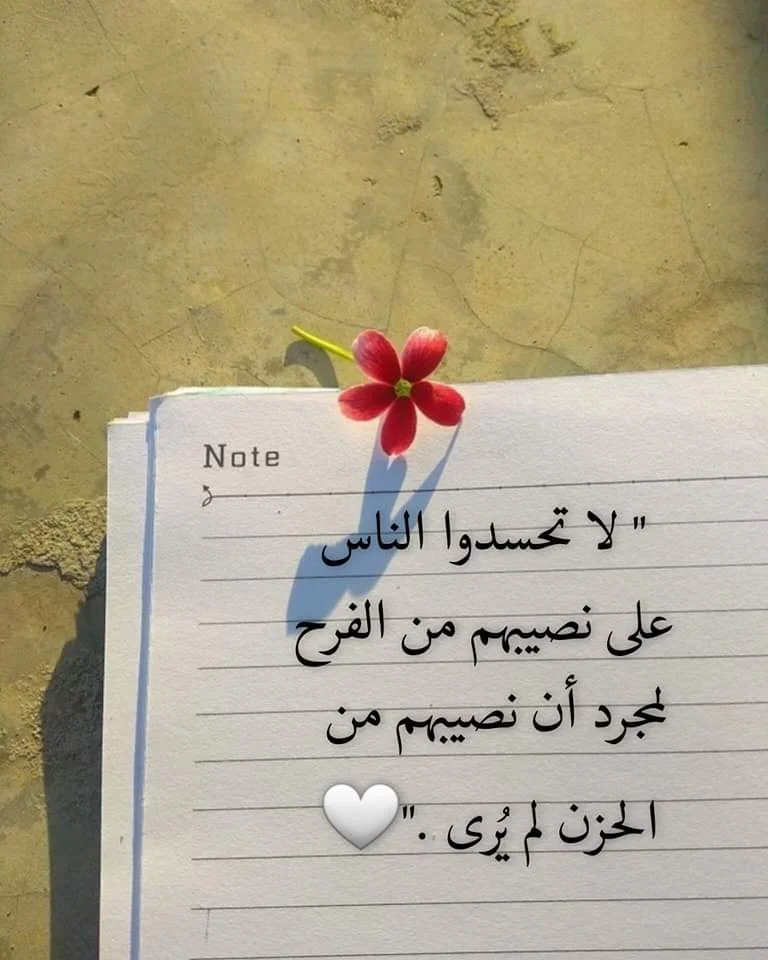 Note
" لا تحسدوا الناس
على نصيبهم من الفرح
لمجرد أن نصيبهم من
الحزن لم يُرى ."🤍